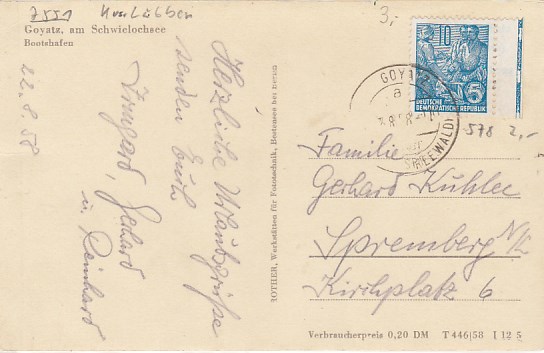 7551 Kr. Lübben
Goyatz, am Schwielochsee
Bootshafen
22.8.58
Herzliche Urlaubsgrüße
senden Euch
Irmgard, Gerhard
u. Reinhard
ROTHER, Werkstätten für Fototechnik, Bestensee bei Berlin
3,-
10
DEUTSCHE
DEMOKRATISCHE REPUBLIK
5
GOYATZ
a
(SPREEWALD)
578 2,-
Familie
Gerhard Kuhlee
Spremberg N/L
Kirchplatz 6
Verbraucherpreis 0,20 DM T 446/58 I 12 5